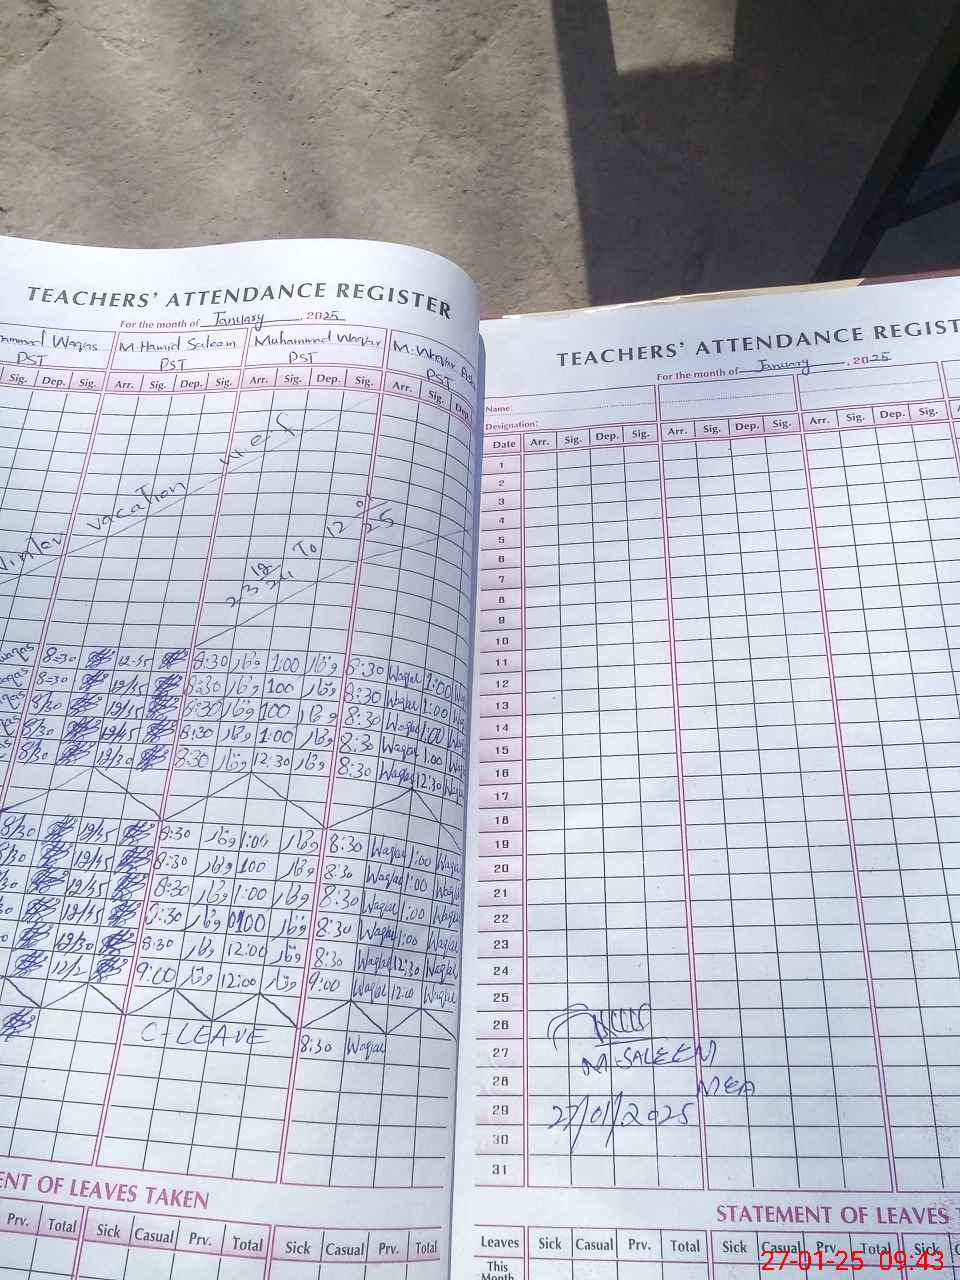 TEACHERS' ATTENDANCE REGISTER
For the month of January, 2025
Waqas M. Hamid Saleem Muhammad Waqar M. Waqar
PST PST PST PST
Sig. Dep. Sig. Arr. Sig. Dep. Sig. Arr. Sig. Dep. Sig. Arr. Sig. Dep.
vacation w.e.f
To 12
8=30 12-45 8:30 وقار 1:00 وقار 8:30 Waqar 1:00
8=30 12/45 8:30 وقار 100 وقار 8:30 Waqar 1:00
8/30 12/45 8:30 وقار 100 وقار 8:30 Waqar 1:00
8/30 12/45 8:30 وقار 1:00 وقار 8:30 Waqar 1:00
8/30 12/30 8:30 وقار 12:30 وقار 8:30 Waqar 12:30
8/30 12/45 8:30 وقار 1:00 وقار 8:30 Waqar 1:00 Waqar
8/30 12/45 8:30 وقار 100 وقار 8:30 Waqar 1:00 Waqar
12/45 8:30 وقار 1:00 وقار 8:30 Waqar 1:00 Waqar
12/45 8:30 وقار 0100 وقار 8:30 Waqar 1:00 Waqar
12/30 8:30 وقار 12:00 وقار 8:30 Waqar 12:30 Waqar
12/2 9:00 وقار 12:00 وقار 9:00 Waqar 12:00 Waqar
C-LEAVE 8:30 Waqar
STATEMENT OF LEAVES TAKEN
Prv. Total Sick Casual Prv. Total Sick Casual Prv. Total
TEACHERS' ATTENDANCE REGIST
For the month of January, 2025
Name:
Designation:
Date Arr. Sig. Dep. Sig. Arr. Sig. Dep. Sig. Arr. Sig. Dep. Sig.
1
2
3
4
5
6
7
8
9
10
11
12
13
14
15
16
17
18
19
20
21
22
23
24
25
26
27
M. SALEEM
28
MEA
29
27/01/2025
30
31
STATEMENT OF LEAVES T
Leaves Sick Casual Prv. Total Sick Casual Prv. Total Sick
This
Month
27-01-25 09:43